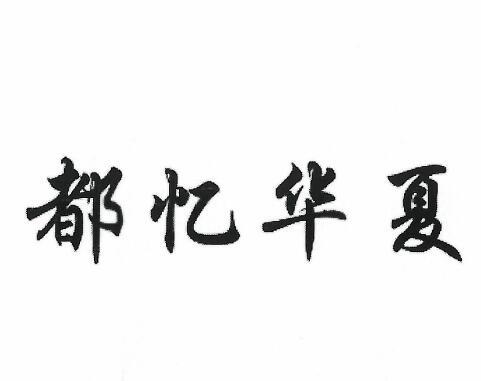 都忆华夏